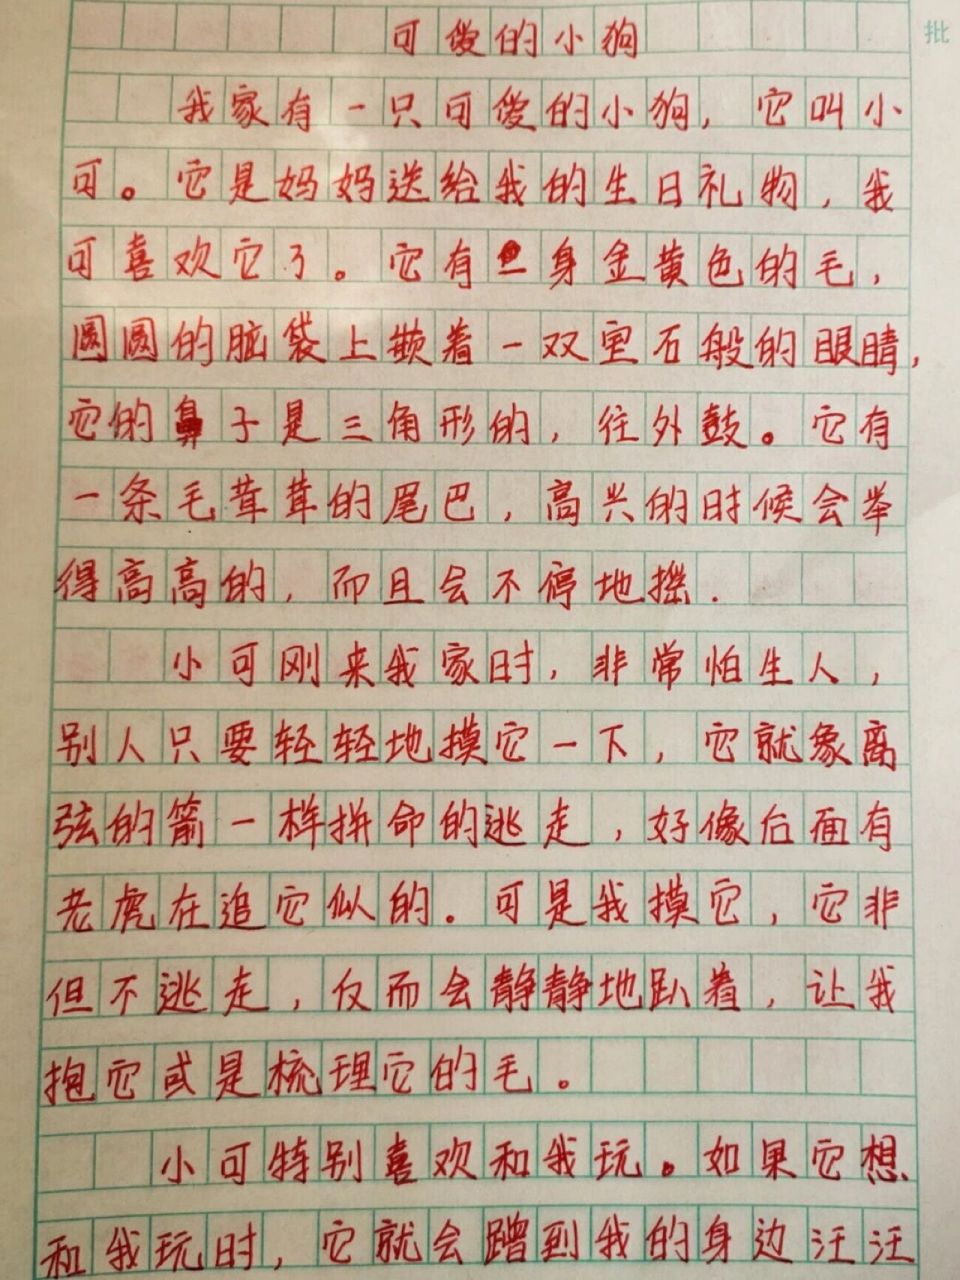 可爱的小狗
批
我家有一只可爱的小狗，它叫小
可。它是妈妈送给我的生日礼物，我
可喜欢它了。它有一身金黄色的毛，
圆圆的脑袋上嵌着一双宝石般的眼睛，
它的鼻子是三角形的，往外鼓。它有
一条毛茸茸的尾巴，高兴的时候会举
得高高的，而且会不停地摇.
小可刚来我家时，非常怕生人，
别人只要轻轻地摸它一下，它就象离
弦的箭一样拼命的逃走，好像后面有
老虎在追它似的。可是我摸它，它非
但不逃走，反而会静静地趴着，让我
抱它或是梳理它的毛。
小可特别喜欢和我玩。如果它想
和我玩时，它就会蹭到我的身边汪汪